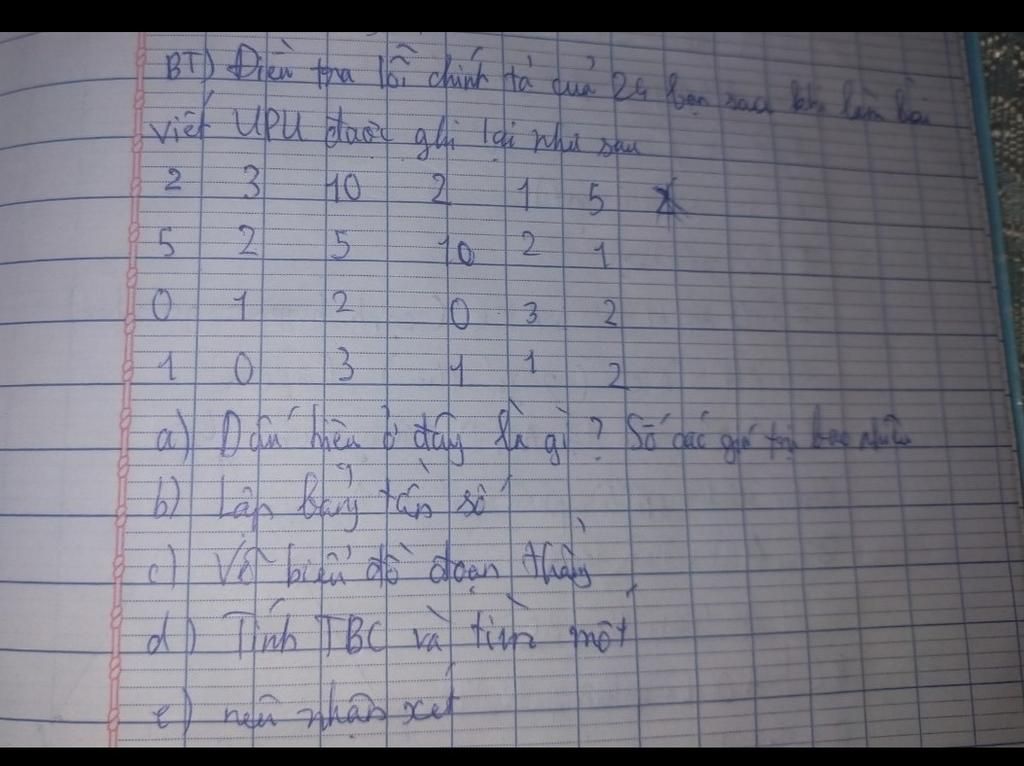 BT) Điều tra lỗi chính tả của 24 bạn sau khi làm bài
viết UPU được ghi lại như sau
2 3 10 2 1 5
5 2 5 10 2 1
0 1 2 0 3 2
1 0 3 1 1 2
a) Dấu hiệu ở đây là gì? Số các giá trị bao nhiêu
b) Lập bảng tần số
c) Vẽ biểu đồ đoạn thẳng
d) Tính TBC và tìm mốt
e) nêu nhận xét